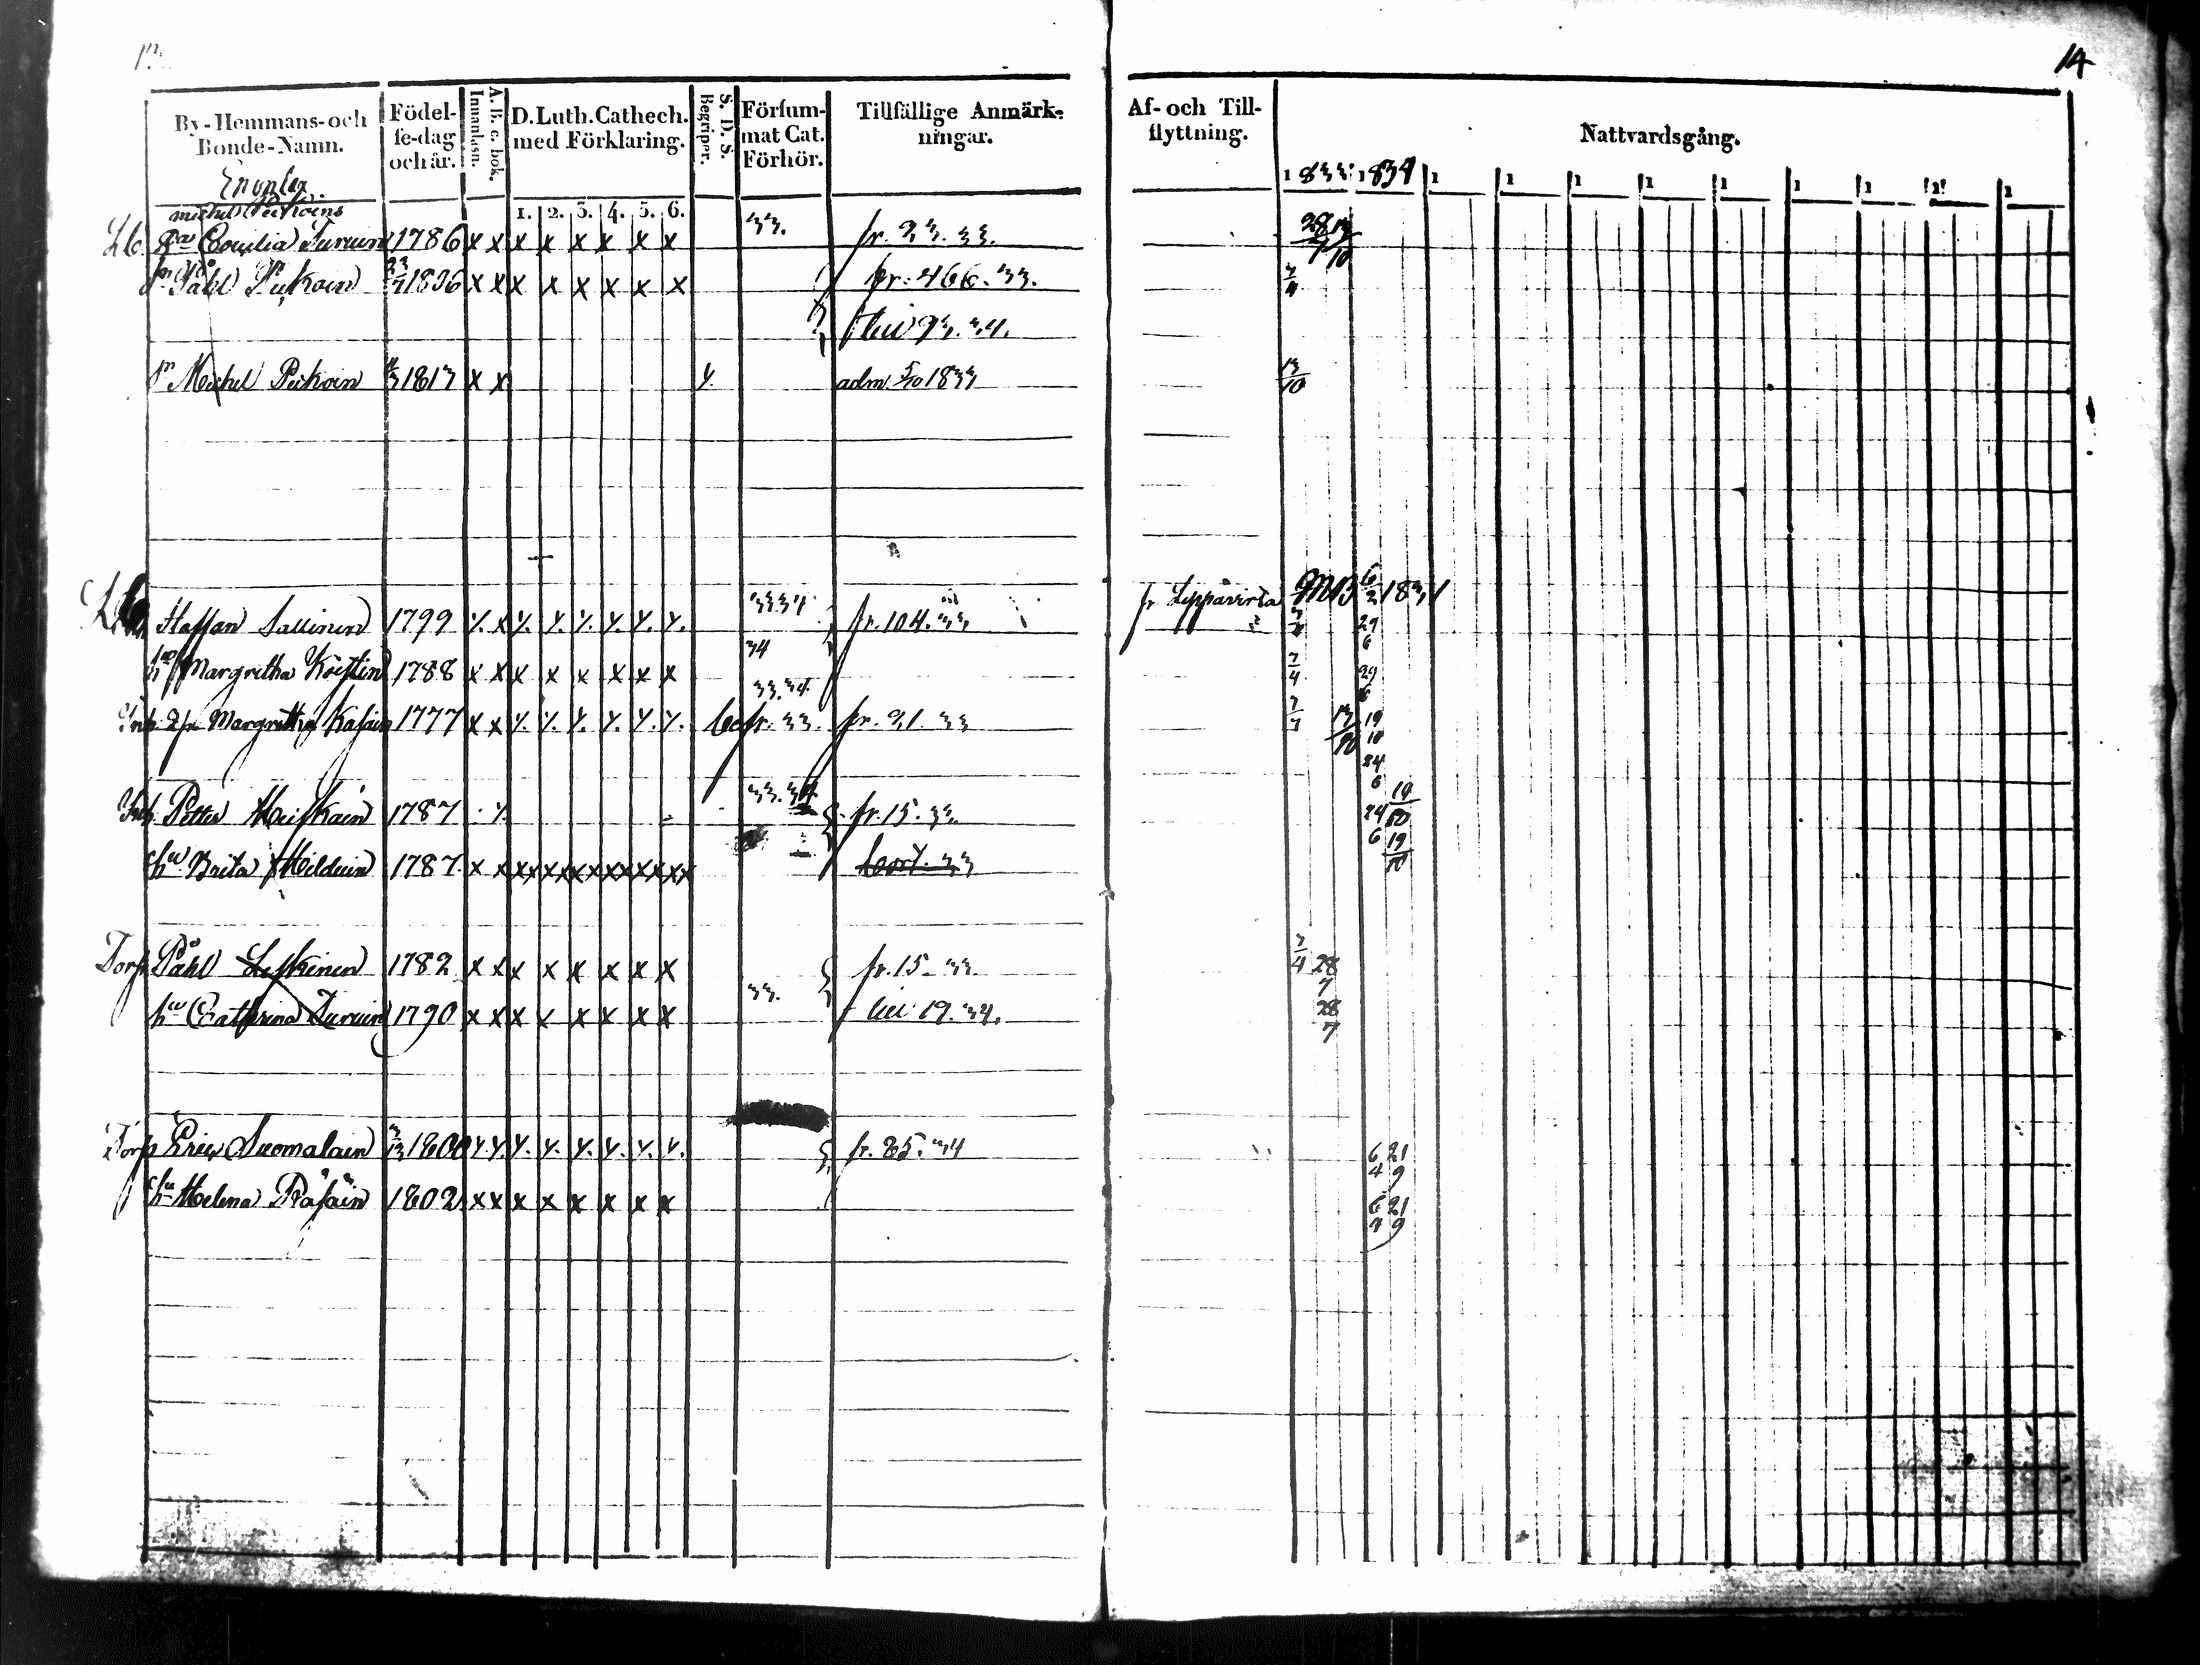 13
14
By-Hemmans-och Bonde-Namn.
Födelse-dag och år.
Innanläsn.
A. B. c. bok.
D. Luth. Cathech. med Förklaring.
1. 2. 3. 4. 5. 6.
S. D. S. Begriper.
Försummat Cat. Förhör.
Tillfällige Anmärkningar.
Af- och Tillflyttning.
Nattvardsgång.
1833 1834 1 1 1 1 1 1 1 1 1
Michel Peikoins
Cecilia Turuin 1786 x x x x x x x x 33. fr. 23. 33. 28/7 13/10
Påhl Peikoin 1806 x x x x x x x x fr. 466. 33. 7/4
93. 34.
Michel Peikoin 1813 x x adm 5/10 1833 13/10
Staffan Sallinen 1799 x x x x x x x x 33 34 fr. 104. 33 fr Leppävirta MB 6/2 1831 7/4 29/6
Margretha 1788 x x x x x x x x 34 7/4 29/6
Margretha Kasain 1777 x x x x x x x x 33. 34 fr. 33. fr. 21. 33 13/10 19/10
Petter Heiskain 1787 x 33. 34 fr. 15. 33. 24/6 19/10
hu Brita 1787 x x x x x x x x bort. 33 24/6 19/10
Torp Påhl Leskinen 1782 x x x x x x x x fr. 15. 33 7/4 28/7
hu Catharina Turuin 1790 x x x x x x x x 33. 19. 34. 28/7
Torp Eric Suomalain 1800 x x x x x x x x fr. 85. 34 6/4 21/9
hu Helena Räsäin 1802 x x x x x x x x 6/4 21/9